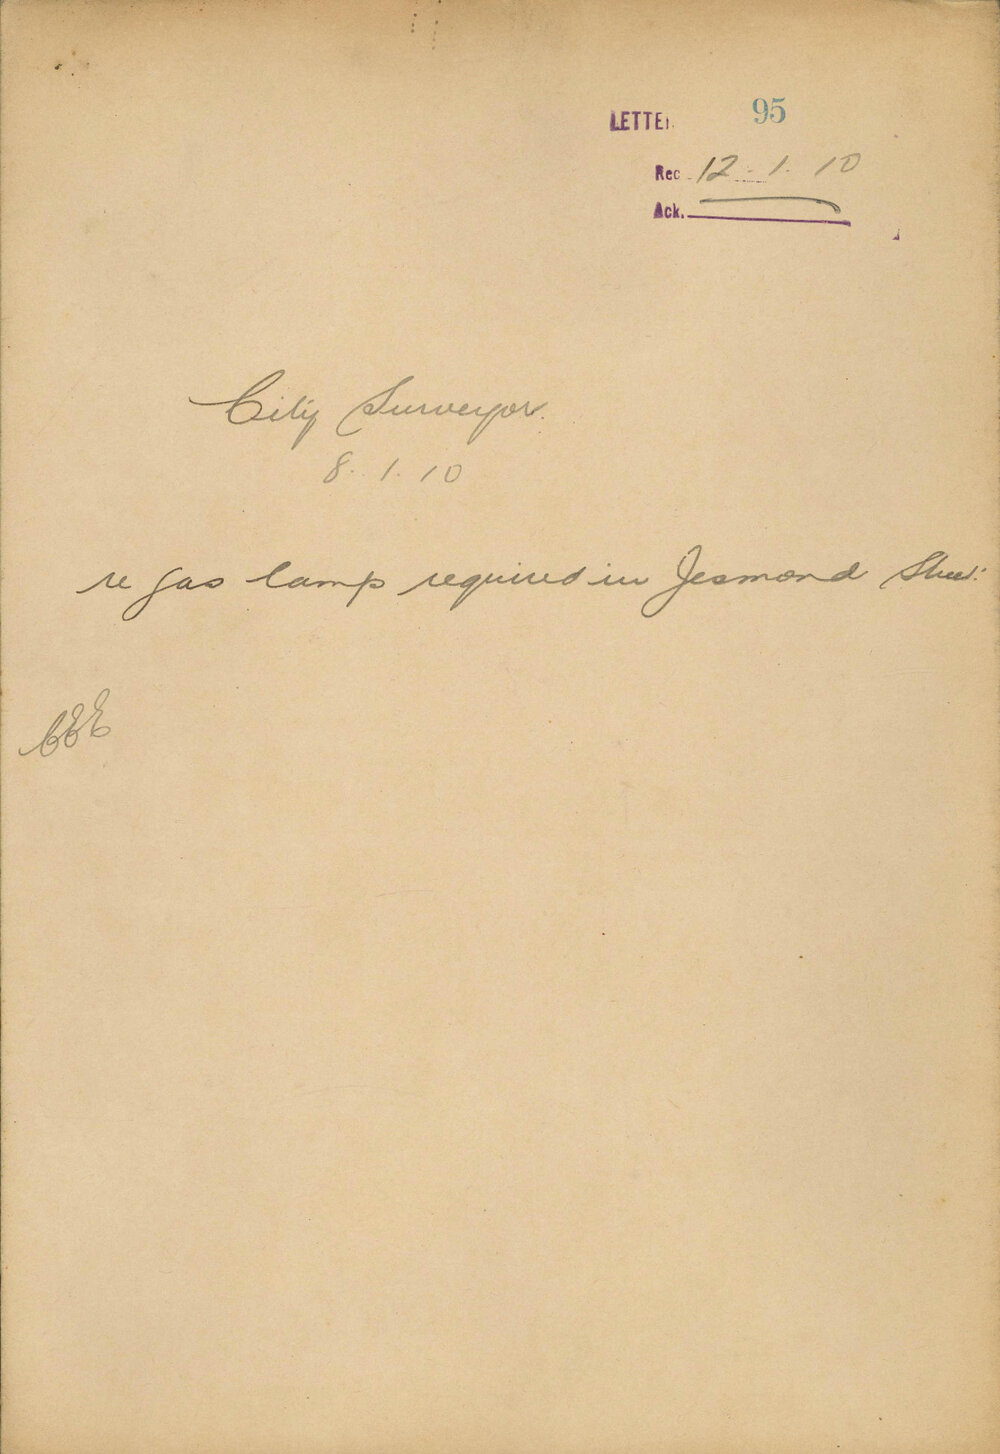 LETTER 95
Rec 12.1.10
Ack.
City Surveyor.
8.1.10
re gas lamp required in Jesmond Street.